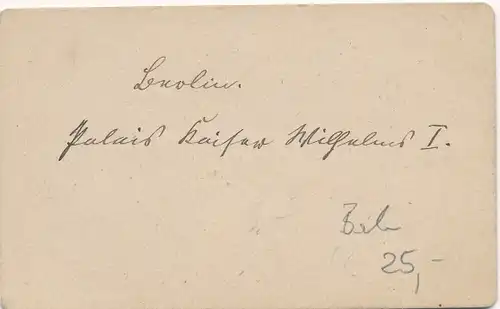 Berlin.
Palais Kaiser Wilhelms I.
25,-